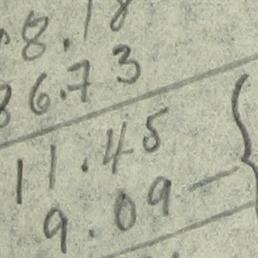 8.18
86.73
11.45
9.09